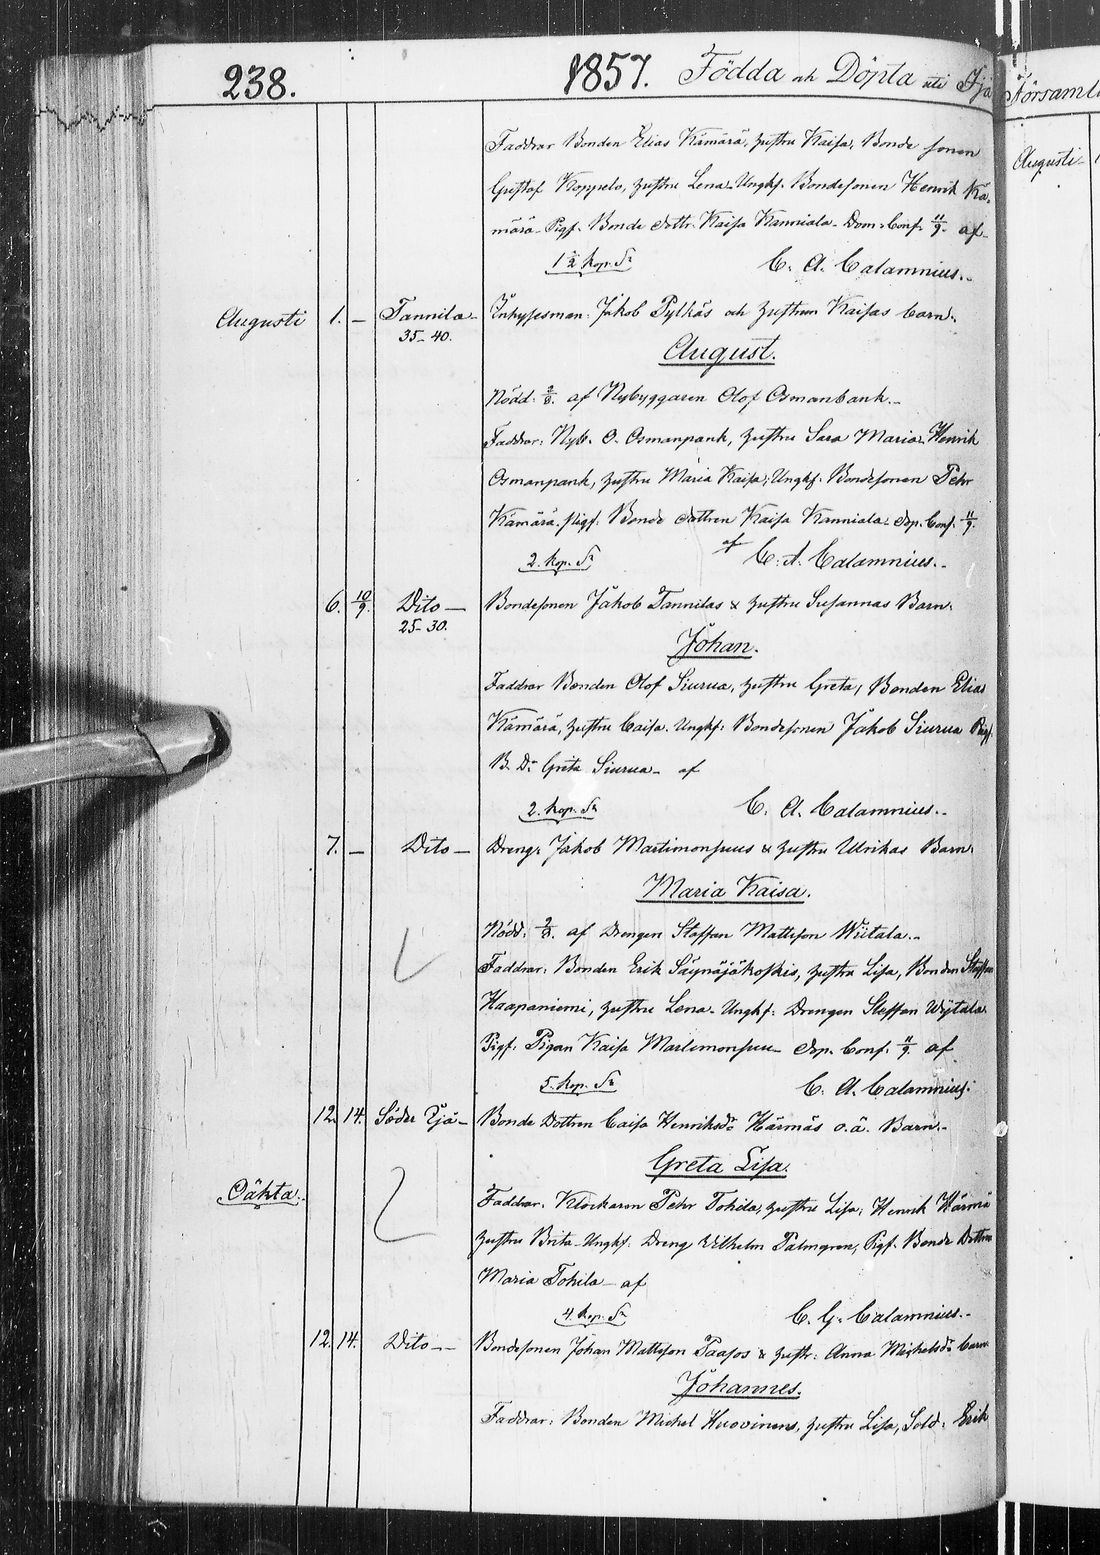 238. 1857. Födda och Döpta uti Ijo
Församli
Augusti
Faddrar Bonden Elias Kämärä, hustru Kaisa, Bonde sonen
Gustaf Koppelo, hustru Lena. Ungk. Bondesonen Henrik Kä-
märä. Pigf. Bonde dottr. Kaisa Kanniala. Dom. Conf. 11/9. af
1 1/2 Kop. Sr C. A. Calamnius.
Augusti 1. – Tannila Inhysesman: Jakob Pylkäs och hustrun Kaisas barn.
35-40. August.
Nödd: 2/8. af Nybyggaren Olof Osmanbank.
Faddrar: Nyb. O. Osmanpank, hustru Sara Maria. Henrik
Osmanpank, hustru Maria Kaisa. Ungk: Bondesonen Pehr
Kämärä. Pigf: Bonde dottren Kaisa Kanniala. Dop. Conf. 11/9.
2. Kop. Sr af C. A. Calamnius.
6. 10/9. Dito – Bondesonen Jakob Tannilas & hustru Susannas Barn.
25-30. Johan.
Faddrar Bonden Olof Siurua, hustru Greta, Bonden Elias
Kämärä, hustru Caisa. Ungk: Bondesonen Jakob Siurua Pigf.
B. D: Greta Siurua – af
2. Kop. Sr C. A. Calamnius.
7. – Dito – Dreng: Jakob Martimonsuus & hustru Ulrikas Barn.
Maria Kaisa.
Nödd: 2/8. af Drengen Staffan Mattsson Wiitala.
Faddrar: Bonden Erik Säynäjäkoskis, hustru Lisa, Bonden Staffan
Haapaniemi, hustru Lena. Ungk: Drengen Steffan Wijtala
Pigf: Pigan Kaisa Martimonsuu – Dop. Conf. 11/9. af
5. Kop. Sr C. A. Calamnius.
12. 14. Söder Ijå – Bonde Dottren Caisa Henriksdr Härmäs o.ä. Barn.
Oäkta. Greta Lisa.
Faddrar: Klockaren Pehr Tohila, hustru Lisa, Henrik Härmä
hustru Brita. Ungk. Dreng Wilhelm Palmgren, Pigf. Bonde Dottren
Maria Tohila – af
4. Kop. Sr C. G. Calamnius.
12. 14. Dito – Bondesonen Johan Mattsson Paasos & hustr: Anna Michelsdr barn
Johannes.
Faddrar: Bonden Michel Huovinens, hustru Lisa, Sold: Erik